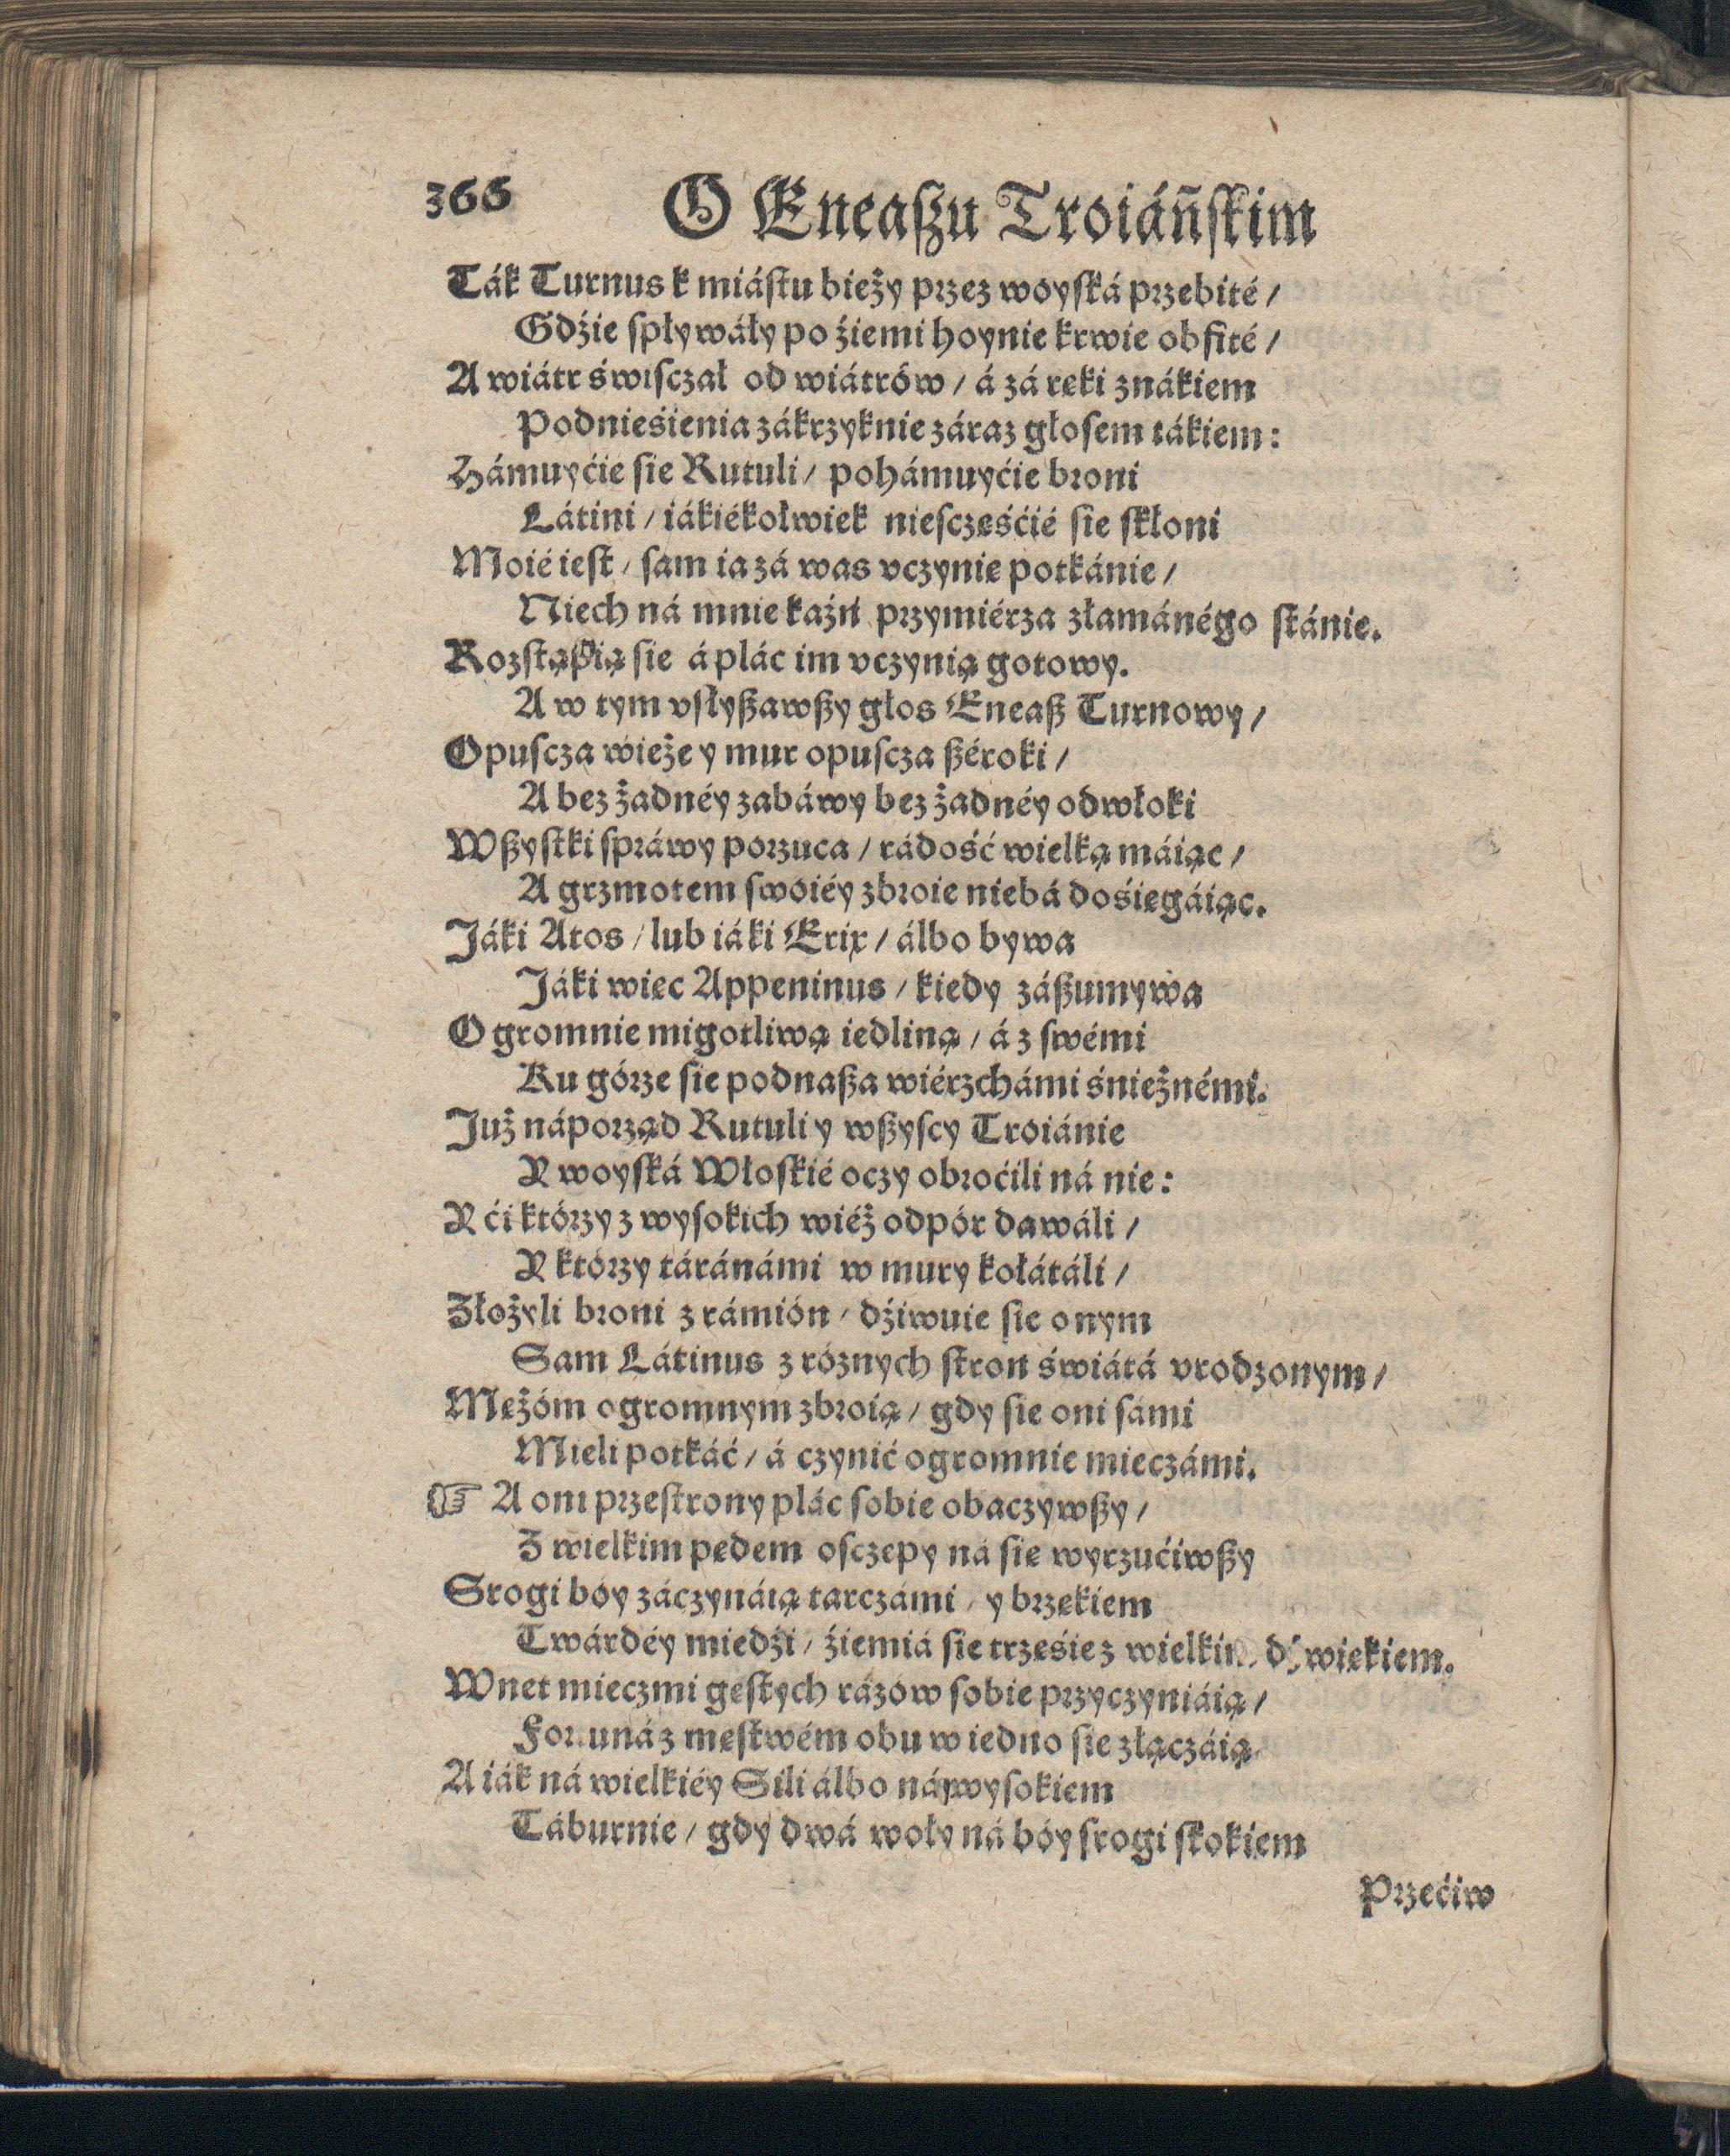 366 O Eneaſzu Troiáńſkim
Ták Turnus k miáſtu bieży przez woyſká przebité /
Gdźie ſpływáły po źiemi hoynie krwie obfité /
A wiátr świſczał od wiátrów / á zá ręki znákiem
Podnieśienia zákrzyknie záraz głoſem tákiem:
Hámuyćie ſie Rutuli / pohámuyćie broni
Látini / iákiékolwiek nieſczęśćié ſie ſkłoni
Moié ieſt / ſam ia zá was vczynię potkánie /
Niech ná mnie kaźń przymiérza złamánégo ſtánie.
Rozſtąpią ſie á plác im vczynią gotowy.
A w tym vſłyſzawſzy głos Eneaſz Turnowy /
Opuſcza wieże y mur opuſcza ſzéroki /
A bez żadnéy zabáwy bez żadnéy odwłoki
Wſzyſtki ſpráwy porzuca / rádość wielką máiąc /
A grzmotem ſwoiéy zbroie niebá dośięgáiąc.
Jáki Atos / lub iáki Erix / álbo bywa
Jáki więc Appeninus / kiedy záſzumywa
Ogromnie migotliwą iedliną / á z ſwémi
Ku górze ſie podnaſza wiérzchámi śnieżnémi.
Już náporząd Rutuli y wſzyſcy Troiánie
Y woyſká Włoſkié oczy obroćili ná nie:
Y ći którzy z wyſokich wiéż odpór dawáli /
Y którzy táránámi w mury kołátáli /
Złożyli broni z rámión / dźiwuie ſie onym
Sam Látinus z róznych ſtron świátá vrodzonym /
Mężóm ogromnym zbroią / gdy ſie oni ſámi
Mieli potkáć / á czynić ogromnie mieczámi.
☞ A oni przeſtrony plác ſobie obaczywſzy /
Z wielkim pędem oſczepy ná ſię wyrzućiwſzy
Srogi bóy záczynáią tarczámi / y brzękiem
Twárdéy miedźi / źiemiá ſie trzęśie z wielkim dźwiękiem.
Wnet mieczmi gęſtych rázów ſobie przyczyniáią /
Fortuná z męſtwém obu w iedno ſie złączáią
A iák ná wielkiéy Sili álbo ná wyſokiem
Táburnie / gdy dwá woły ná bóy ſrogi ſkokiem
Przećiw